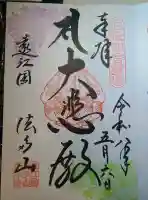 奉拝
令和 年五月六日
大悲殿
遠江国
法多山